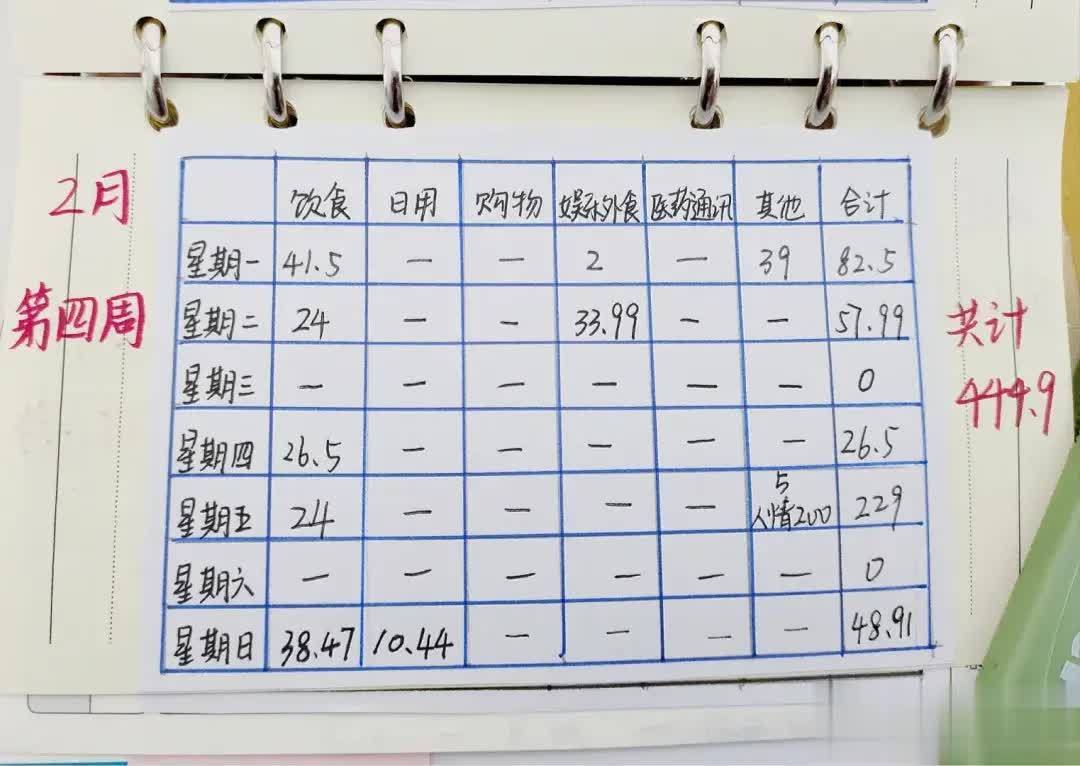 2月
第四周
饮食 日用 购物 娱乐外食 医药通讯 其他 合计
星期一 41.5 — — 2 — 39 82.5
星期二 24 — — 33.99 — — 57.99
星期三 — — — — — — 0
星期四 26.5 — — — — — 26.5
星期五 24 — — — — 5 人情200 229
星期六 — — — — — — 0
星期日 38.47 10.44 — — — — 48.91
共计
444.9